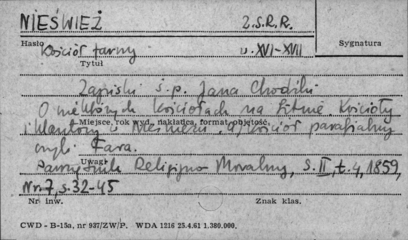 NIEŚWIEŻ Z.S.R.R.
Hasło
Kościół farny w. XVI-XVII Sygnatura
Tytuł
Zapiski ś.p. Jana Chodźki
O niektórych kościołach na Litwie. Kościoły
Miejsce, rok wyd., nakładca, format, objętość
i klasztory w Nieświeżu. a) Kościół parafialny
czyli Fara.
Uwagi
Pamiętnik Religijno Moralny, S.II, t.4, 1859,
Nr 7, s.32-45
Nr inw. Znak klas.
CWD - B-15a, nr 937/ZW/P. WDA 1216 25.4.61 1.380.000.